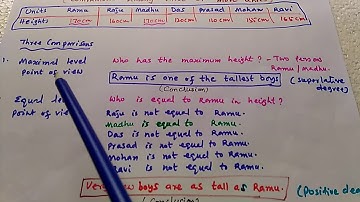 Units Ramu Raju Madhu Das Prasad Mohan Ravi
Heights 170cm 160cm 170cm 160cm 155cm 165cm
Three Comparisons
Maximal level point of view
Who has the maximum height? - Two persons
Ramu/Madhu.
Ramu is one of the tallest boys (superlative degree)
(Conclusion)
Equal
point of view
Who is equal to Ramu in height?
Raju is not equal to Ramu.
Madhu is equal to Ramu.
Das is not equal to Ramu.
Prasad is not equal to Ramu.
Mohan is not equal to Ramu.
Ravi is not equal to Ramu.
boys are as tall as Ramu. (Positive
(Conclusions